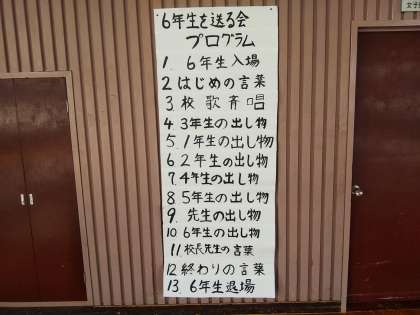 6年生を送る会
プログラム
1. 6年生入場
2 はじめの言葉
3 校歌斉唱
4 3年生の出し物
5. 1年生の出し物
6 2年生の出し物
7. 4年生の出し物
8 5年生の出し物
9. 先生の出し物
10 6年生の出し物
11 校長先生の言葉
12 終わりの言葉
13 6年生退場
女子